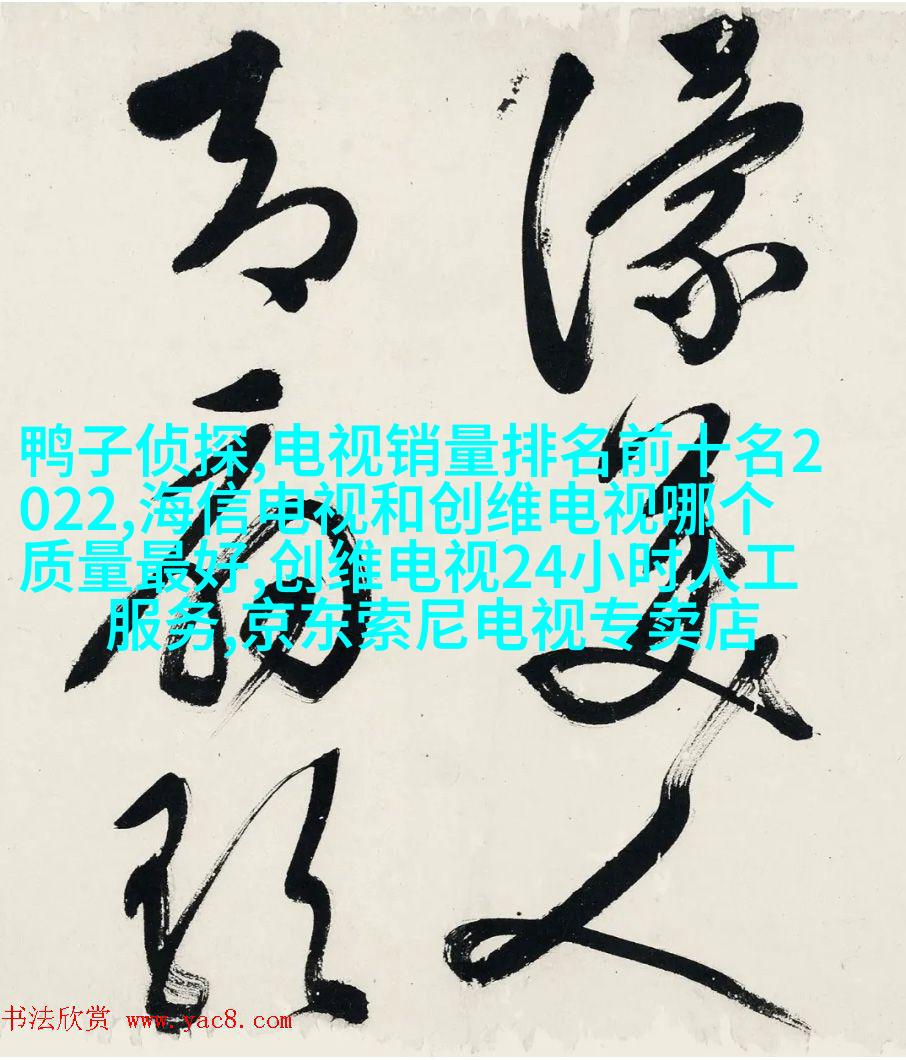 濛美人
鸭子侦探,电视销量排名前十名2
022,海信电视和创维电视哪个
质量最好,创维电视24小时人工
服务,京东索尼电视专卖店
书法欣赏 www.yac8.com